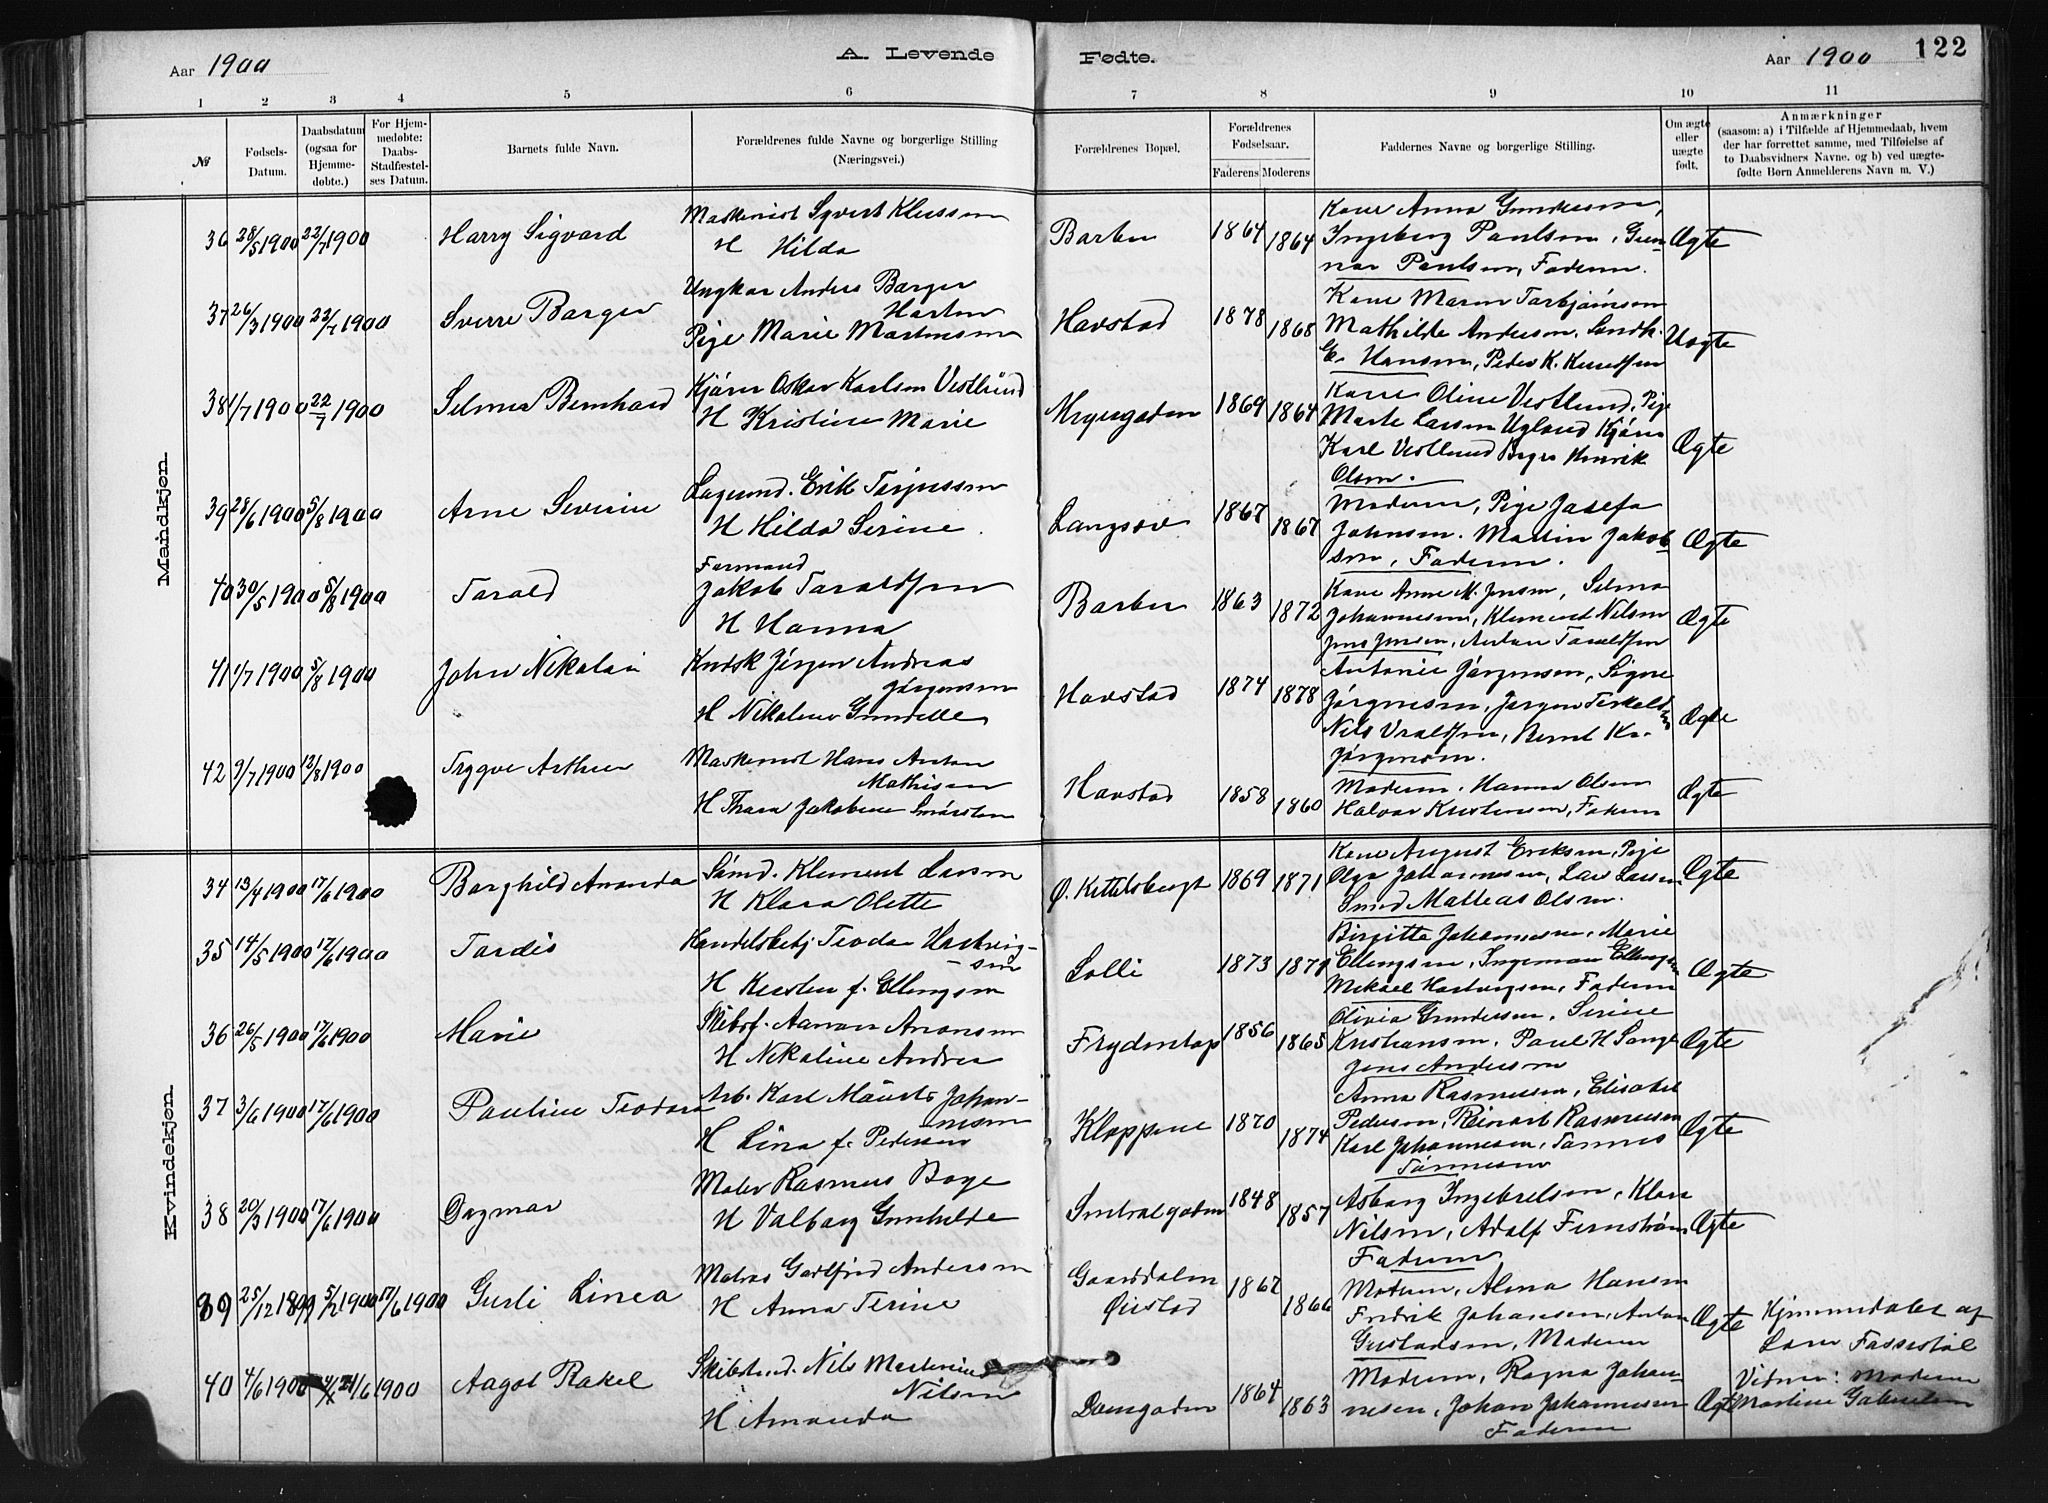 Aar 1900
A. Levende
Fødte.
Aar 1900
122
1 2 3 4 5 6 7 8 9 10 11
№
Fødsels-Datum.
Daabsdatum (ogsaa for Hjemme-døbte.)
For Hjem-medøbte: Daabs-Stadfæstel-ses Datum.
Barnets fulde Navn.
Forældrenes fulde Navne og borgerlige Stilling (Næringsvei.)
Forældrenes Bopæl.
Forældrenes Fødselsaar.
Faderens Moderens
Faddernes Navne og borgerlige Stilling.
Om ægte eller uægte født.
Anmærkninger
(saasom: a) i Tilfælde af Hjemmedaab, hvem
der har forrettet samme, med Tilføielse af
to Daabsvidners Navne. og b) ved uægte-
fødte Børn Anmelderens Navn m. V.)
Mandkjøn.
36 28/5 1900 22/7 1900 Harry Sigvard
H Hilda
Barbu 1864 1864
Kone Anna Gundersen,
Ingeborg Paulsen, Gun-
nar Paulsen, Faderen.
Ægte
37 26/3 1900 22/7 1900 Sverre Borger
Ungkar Anders Borger
Pige Marie Martinsen
Havstad 1878 1868
Mathilde Andersen,
E. Hansen, Peder K. Knudsen
Uægte
38 1/7 1900 22/7 1900 Bernhard
Oskar Karlsen Vestlund
H Kristine Marie
1869 1864
Kone Oline Vestlund, Pige
Marte Larsen Ugland
Karl Vestlund Henrik
Olsen.
Ægte
39 28/6 1900 5/8 1900 Arne Severin
Erik Terjussen
H Hilda Serine
Langsæv 1867 1867
Moderen, Pige Josefa
Johnsen. Martin Jakob-
sen, Faderen.
Ægte
40 30/5 1900 5/8 1900 Torald
Formand
Jakob Toraldsen
H Hanna
Barbu 1863 1872
Kone Anne M. Jensen, Selma
Johannesen, Klement Nilsen
Jens Jensen, Anton Toraldsen
Ægte
41 1/7 1900 5/8 1900 John Nikolai
Jørgen Andreas
Jørgensen
H Nikoline Gundelle
Havstad 1874 1878
Antonie Jørgensen, Signe
Jørgensen, Jørgen Terkelsen
Nils Bernt Kr.
Jørgensen.
Ægte
42 9/7 1900 12/8 1900 Trygve Arthur
Maskinist Hans Anton
Mathisen
H Thora Jakobine
Havstad 1858 1860
Moderen. Hanna Olsen
Halvor Kristensen, Faderen
Ægte
Kvindekjøn.
34 13/4 1900 17/6 1900 Borghild Amanda
Sømd. Klement Larsen
H Klara Olette
Ø. Kittelsbugt 1869 1871
Kone August Eriksen, Pige
Olga Johannesen, Lars Larsen
Smed Mathias Olsen.
Ægte
35 14/5 1900 17/6 1900 Tordis
Handelsbetj. Teodor
H Kirsten f. Ellingsen
Lolli 1873 1871
Birgitte Johannesen, Marie
Ellingsen, Ingeman Ellingsen
Mikael Hartvigsen, Faderen
Ægte
36 26/5 1900 17/6 1900 Marie
Skibsf. Aanon Anonsen
H Nikoline Andrea
Frydentop 1856 1865
Olivia Gundersen, Serine
Kristiansen, Paul H
Jens Andersen
Ægte
37 3/6 1900 17/6 1900 Pauline Teodora
Arb. Karl Mauritz Johan-
nesen
H Lina f. Pedersen
Kloppene 1870 1874
Anna Rasmussen, Elisabet
Pedersen, Reinart Rasmussen
Karl Johannesen, Tønnes
Tønnesen
Ægte
38 20/3 1900 17/6 1900 Dagmar
Maler Rasmus Boye
H Valborg Gunhilde
Sentralgaden 1848 1857
Asborg Ingebretsen, Klara
Nilsen, Adolf Fernstrøm
Faderen
Ægte
39 25/12 1899 5/2 1900 17/6 1900 Gurli Linea
Matros Godtfred Andersen
H Anna Terine
Gaarddalen
Øiestad 1867 1866
Moderen, Alma Hansen
Fredrik Johansen, Anton
Gustavsen, Moderen
Ægte
Hjemmedøbt af
40 4/6 1900 24/6 1900 Aagot Rakel
Nils
Nilsen
H Amanda
1864 1863
Moderen, Ragna Johan-
nesen, Johan Johannesen
Faderen
Ægte
Vidner: Moderen
Martine Gabrielsen